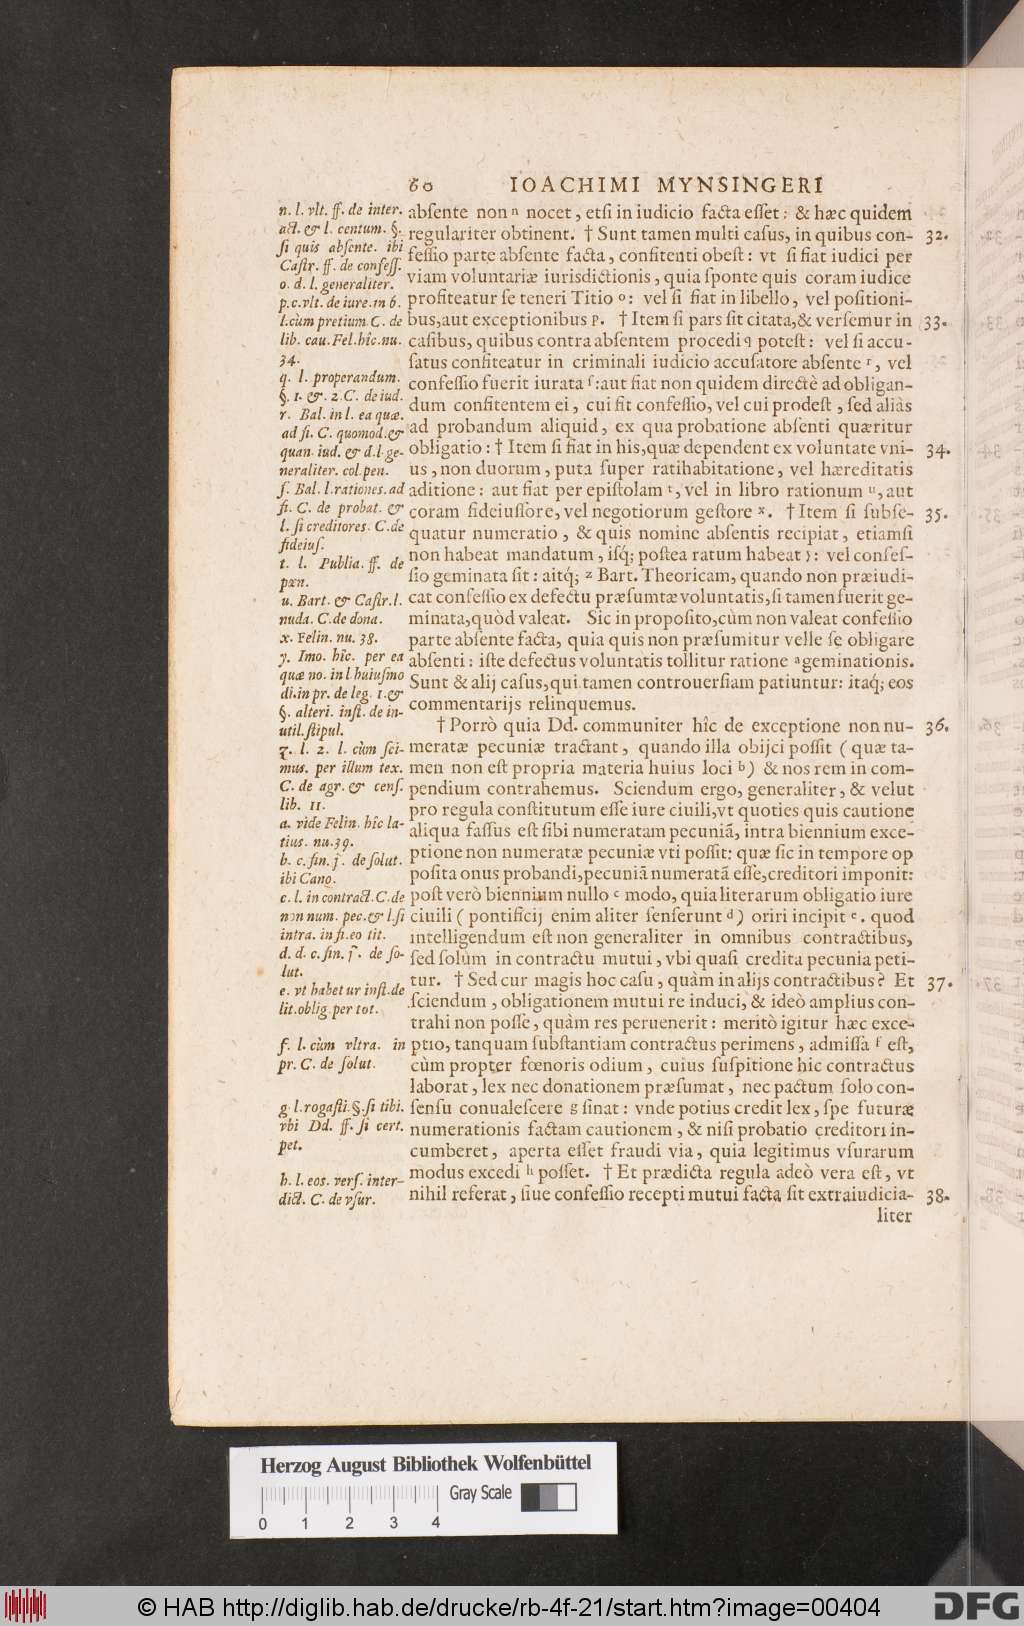 60 IOACHIMI MYNSINGERI
absente non n nocet, etsi in iudicio facta esset: & hæc quidem
regulariter obtinent. † Sunt tamen multi casus, in quibus con-
fessio parte absente facta, confitenti obest: vt si fiat iudici per
viam voluntariæ iurisdictionis, quia sponte quis coram iudice
profiteatur se teneri Titio o: vel si fiat in libello, vel positioni-
bus, aut exceptionibus p. † Item si pars sit citata, & versemur in
casibus, quibus contra absentem procedi q potest: vel si accu-
satus confiteatur in criminali iudicio accusatore absente r, vel
confessio fuerit iurata s: aut fiat non quidem directè ad obligan-
dum confitentem ei, cui fit confessio, vel cui prodest, sed aliàs
ad probandum aliquid, ex qua probatione absenti quæritur
obligatio: † Item si fiat in his, quæ dependent ex voluntate vni-
us, non duorum, puta super ratihabitatione, vel hæreditatis
aditione: aut fiat per epistolam t, vel in libro rationum u, aut
coram fideiussore, vel negotiorum gestore x. † Item si subse-
quatur numeratio, & quis nomine absentis recipiat, etiamsi
non habeat mandatum, isq́; postea ratum habeat y: vel confes-
sio geminata sit: aitq́; z Bart. Theoricam, quando non præiudi-
cat confessio ex defectu præsumtæ voluntatis, si tamen fuerit ge-
minata, quòd valeat. Sic in proposito, cùm non valeat confessio
parte absente facta, quia quis non præsumitur velle se obligare
absenti: iste defectus voluntatis tollitur ratione a geminationis.
Sunt & alij casus, qui tamen controuersiam patiuntur: itaq́; eos
commentarijs relinquemus.
† Porrò quia Dd. communiter hîc de exceptione non nu-
meratæ pecuniæ tractant, quando illa obijci possit (quæ ta-
men non est propria materia huius loci b) & nos rem in com-
pendium contrahemus. Sciendum ergo, generaliter, & velut
pro regula constitutum esse iure ciuili, vt quoties quis cautione
aliqua fassus est sibi numeratam pecuniã, intra biennium exce-
ptione non numeratæ pecuniæ vti possit: quæ sic in tempore op
posita onus probandi, pecuniã numeratã esse, creditori imponit:
post verò biennium nullo c modo, quia literarum obligatio iure
ciuili (pontificij enim aliter senserunt d) oriri incipit e. quod
intelligendum est non generaliter in omnibus contractibus,
sed solùm in contractu mutui, vbi quasi credita pecunia peti-
tur. † Sed cur magis hoc casu, quàm in alijs contractibus? Et
sciendum, obligationem mutui re induci, & ideò amplius con-
trahi non posse, quàm res peruenerit: meritò igitur hæc exce-
ptio, tanquam substantiam contractus perimens, admissa f est,
cùm propter fœnoris odium, cuius suspitione hic contractus
laborat, lex nec donationem præsumat, nec pactum solo con-
sensu conualescere g sinat: vnde potius credit lex, spe futuræ
numerationis factam cautionem, & nisi probatio creditori in-
cumberet, aperta esset fraudi via, quia legitimus vsurarum
modus excedi h posset. † Et prædicta regula adeò vera est, vt
nihil referat, siue confessio recepti mutui facta sit extraiudicia-
liter
n. l. vlt. ff. de inter.
act. & l. centum. §.
si quis absente. ibi
Castr. ff. de confess.
o. d. l. generaliter.
p. c. vlt. de iure. in 6.
l. cùm pretium. C. de
lib. cau. Fel. hîc. nu.
34.
q. l. properandum.
§. 1. &. 2. C. de iud.
r. Bal. in l. ea quæ.
ad fi. C. quomod. &
quan. iud. & d. l. ge-
neraliter. col. pen.
s. Bal. l. rationes. ad
fi. C. de probat. &
l. si creditores. C. de
fideius.
t. l. Publia. ff. de
pœn.
u. Bart. & Castr. l.
nuda. C. de dona.
x. Felin. nu. 38.
y. Imo. hîc. per ea
quæ no. in l huiusmo
di. in pr. de leg. 1. &
§. alteri. inst. de in-
util. stipul.
z. l. 2. l. cùm sci-
mus. per illum tex.
C. de agr. & cens.
lib. 11.
a. vide Felin. hîc la-
tius. nu. 39.
b. c. fin. j. de solut.
ibi Cano.
c. l. in contract. C. de
non num. pec. & l. si
intra. in fi. eo tit.
d. d. c. fin. j. de so-
lut.
e. vt habetur inst. de
lit. oblig. per tot.
f. l. cùm vltra. in
pr. C. de solut.
g. l. rogasti. §. si tibi.
vbi Dd. ff. si cert.
pet.
h. l. eos. vers. inter-
dict. C. de vsur.
32.
33.
34.
35.
36.
37.
38.
Herzog August Bibliothek Wolfenbüttel
Gray Scale
0 1 2 3 4
© HAB http://diglib.hab.de/drucke/rb-4f-21/start.htm?image=00404
DFG